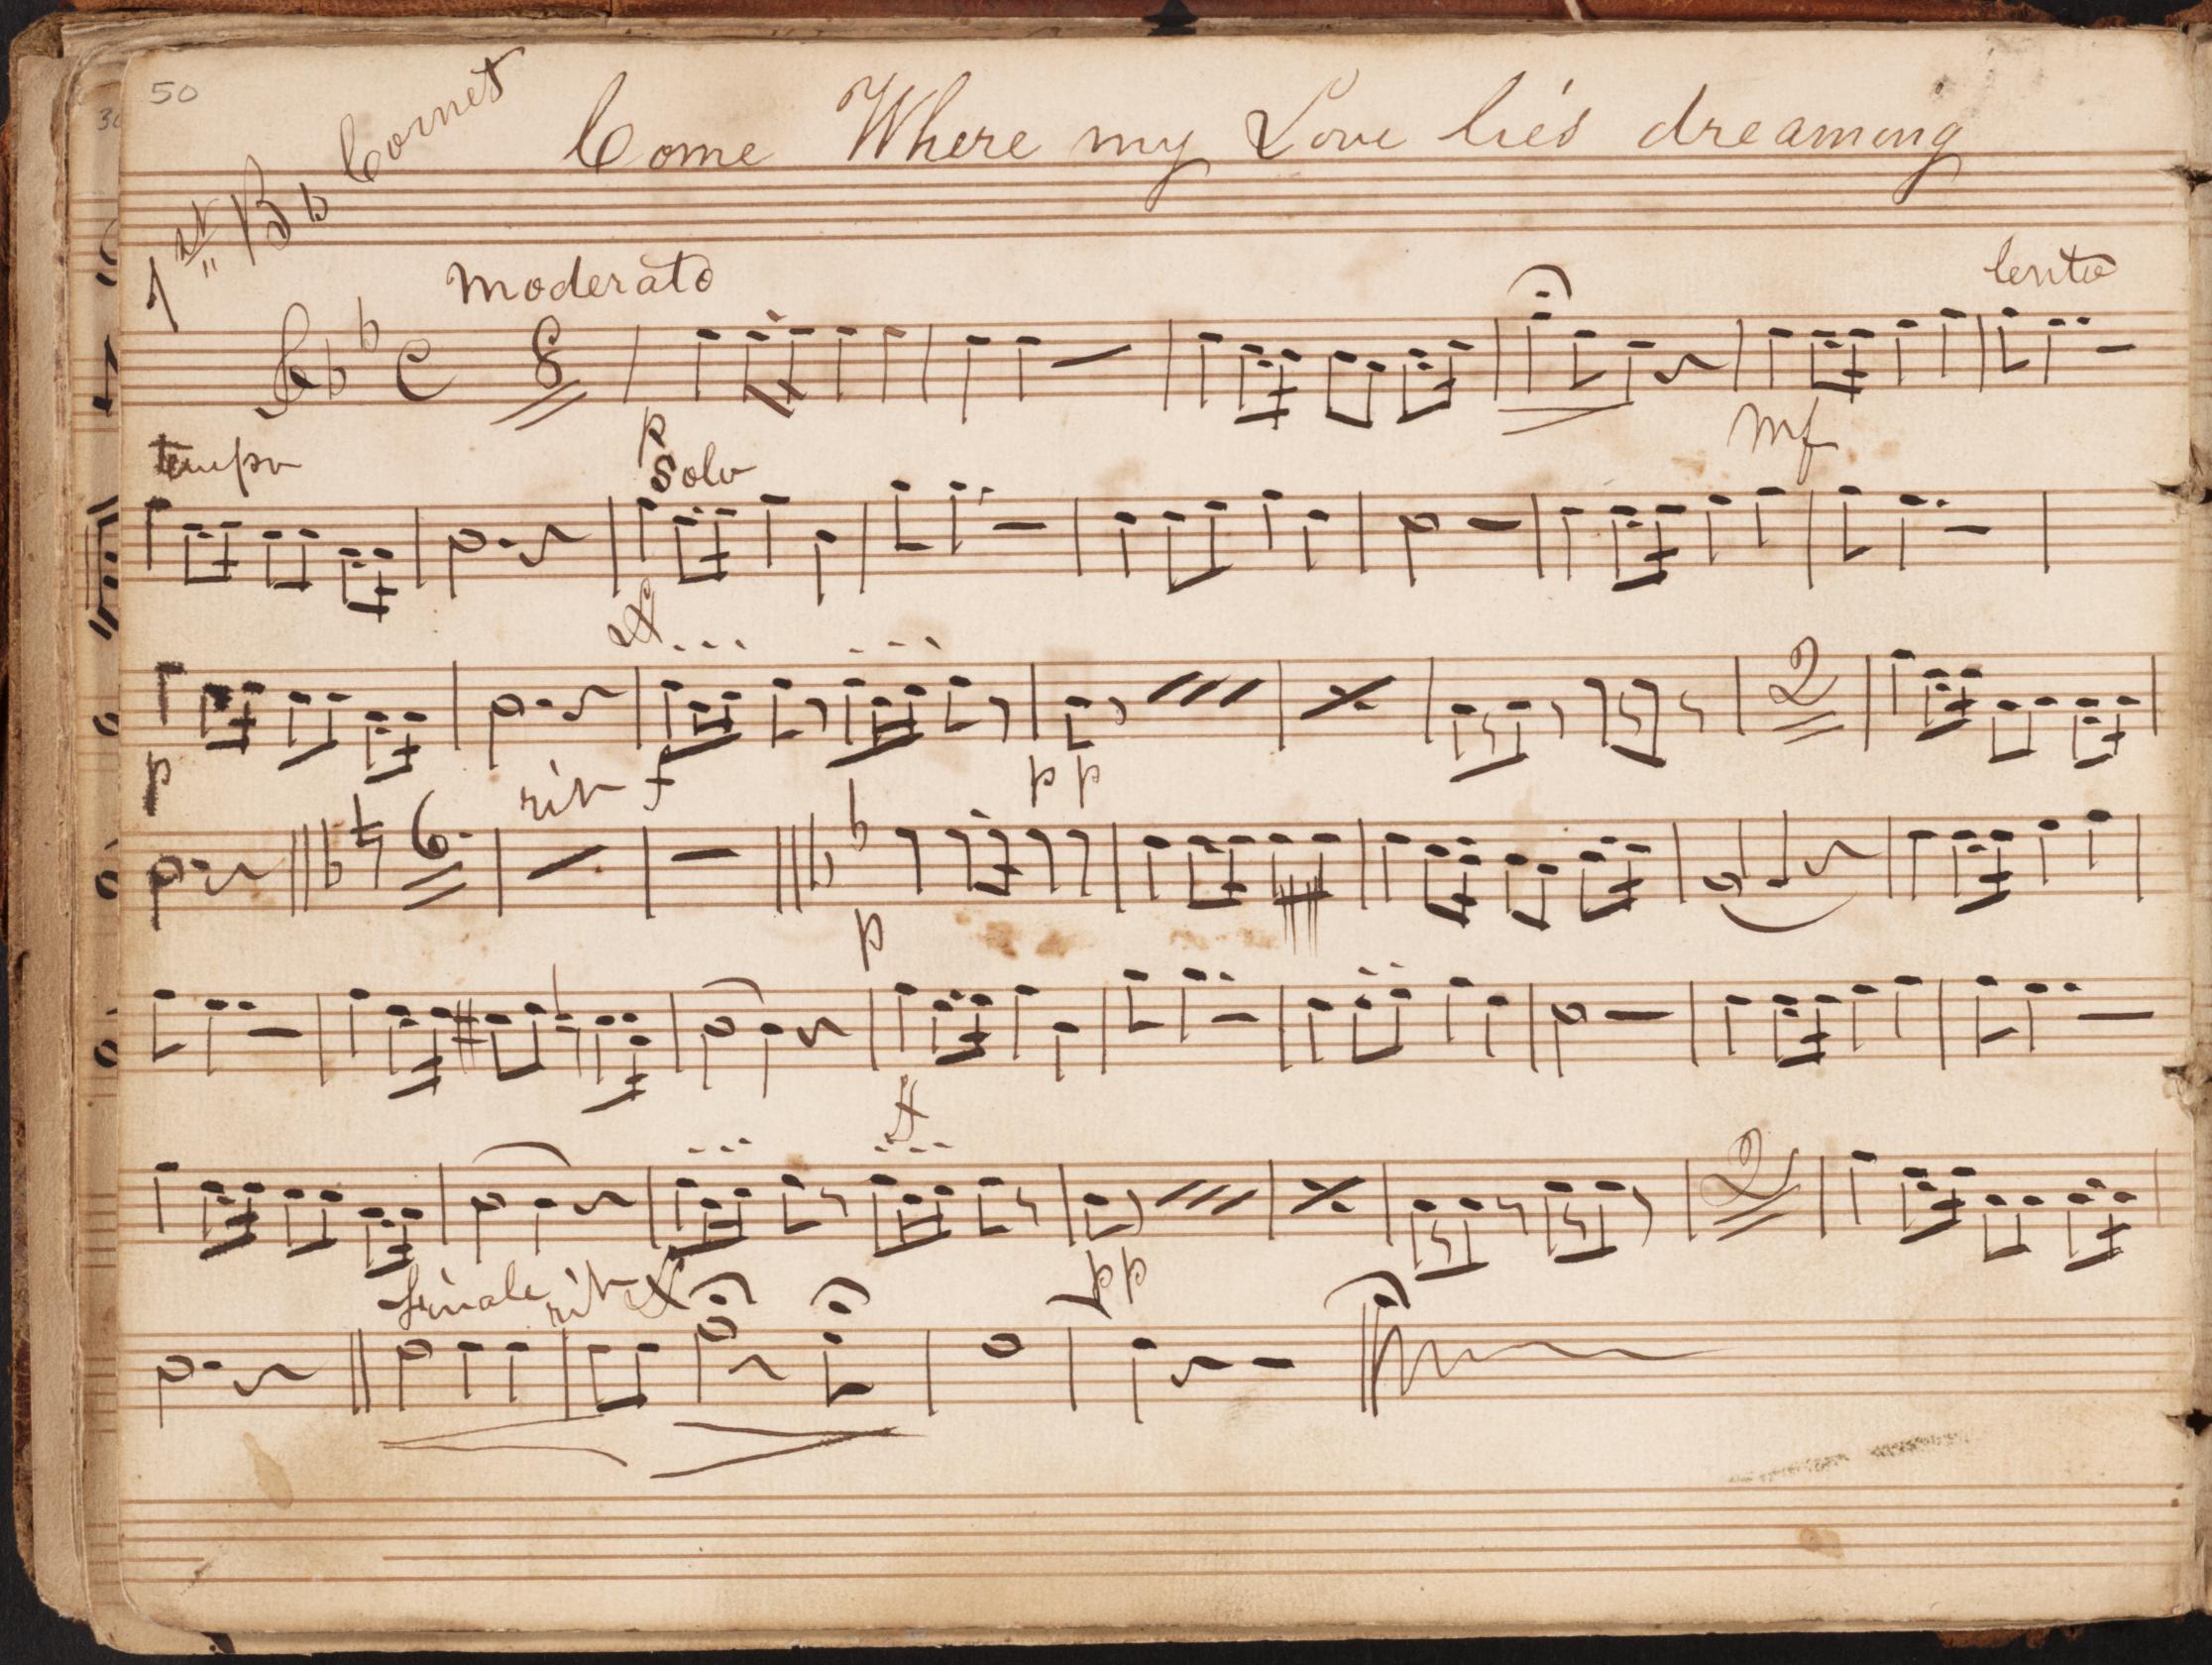 50
1st B♭ Cornet
Come Where my Love lies dreaming
Moderato
lento
C 8
p
mf
tempo
Solo
p
rit f
pp
2
6
p
Finale rit
pp
2